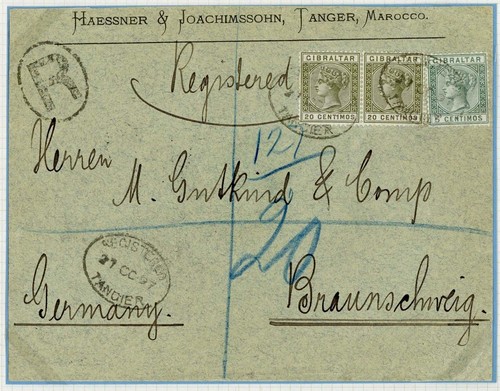 HAESSNER & JOACHIMSSOHN, TANGER, MAROCCO.
R
Registered
GIBRALTAR GIBRALTAR GIBRALTAR
20 CENTIMOS 20 CENTIMOS 5 CENTIMOS
TANGIER
121
Herren
M. Gutkind & Comp
20
REGISTERED
27 OC 97
TANGIER
Germany. Braunschweig.